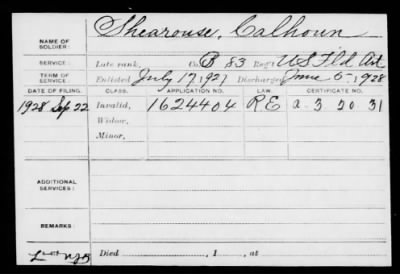 NAME OF SOLDIER: Shearouse, Calhoun
SERVICE: Late rank, Co. B 83 Reg't U S Fld Art
TERM OF SERVICE: Enlisted July 17, 1927 Discharged June 5 - 1928
DATE OF FILING. CLASS. APPLICATION NO. LAW. CERTIFICATE NO.
1928 Sep 22 Invalid, 1624404 R.E a-3 20 31
Widow,
Minor,
ADDITIONAL SERVICES:
REMARKS:
Died , 1 , at